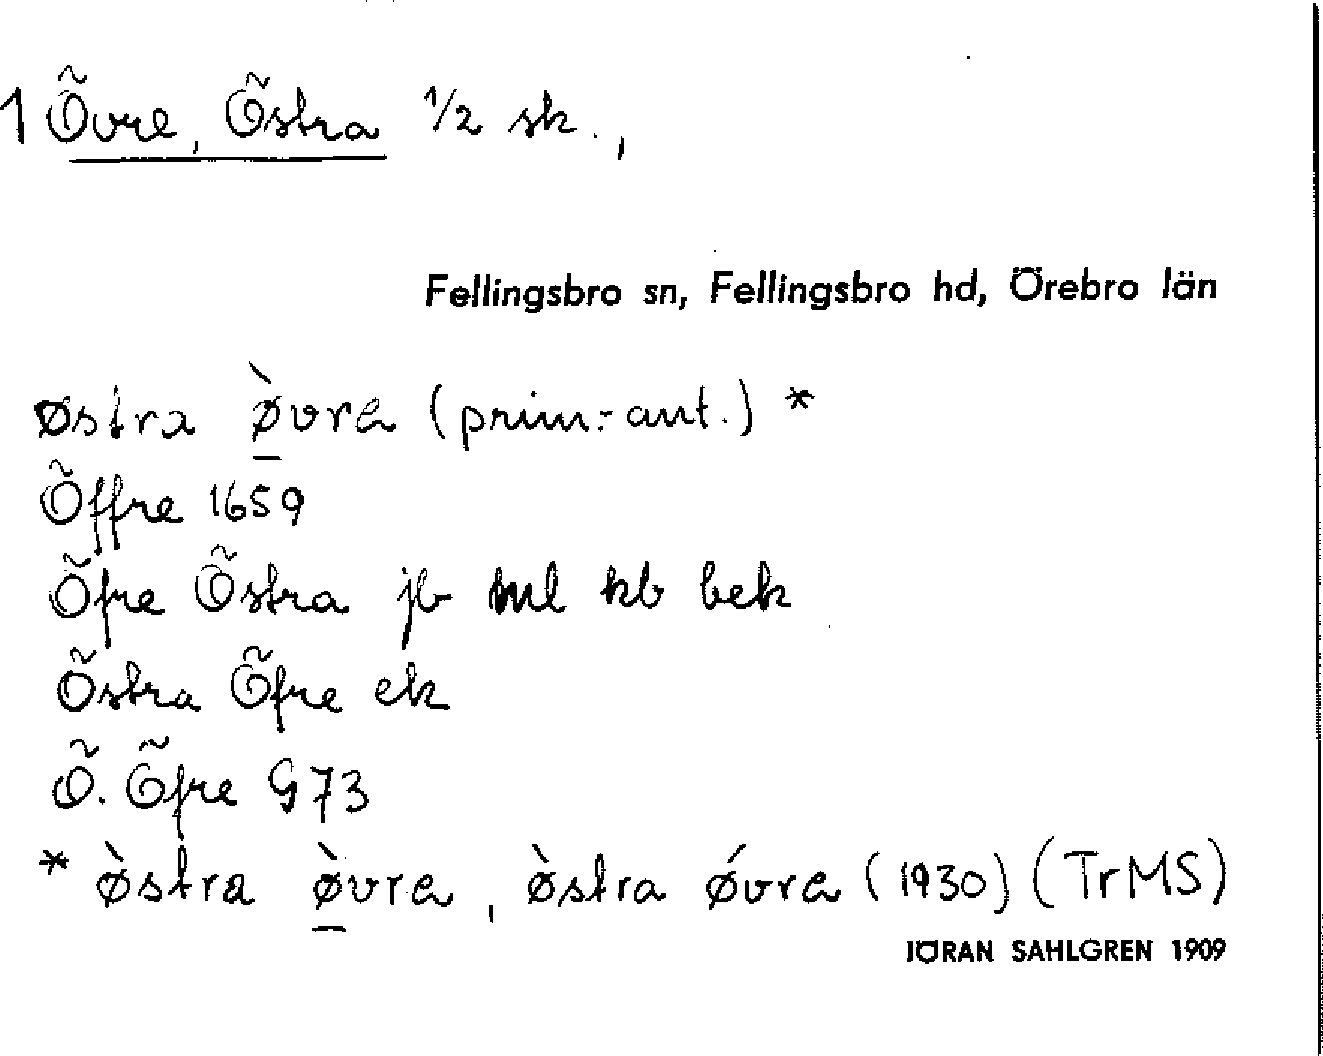 1 Övre, Östra 1/2 sk.,
Fellingsbro sn, Fellingsbro hd, Örebro län
østra ø̀vra (prim.-ant.) *
Öffre 1659
Öfre Östra jb ml kb bek
Östra Öfre ek
Ö. Öfre G73
* ø̀stra ø̀vra, ø̀stra ǿvra (1930) (TrMS)
JÖRAN SAHLGREN 1909